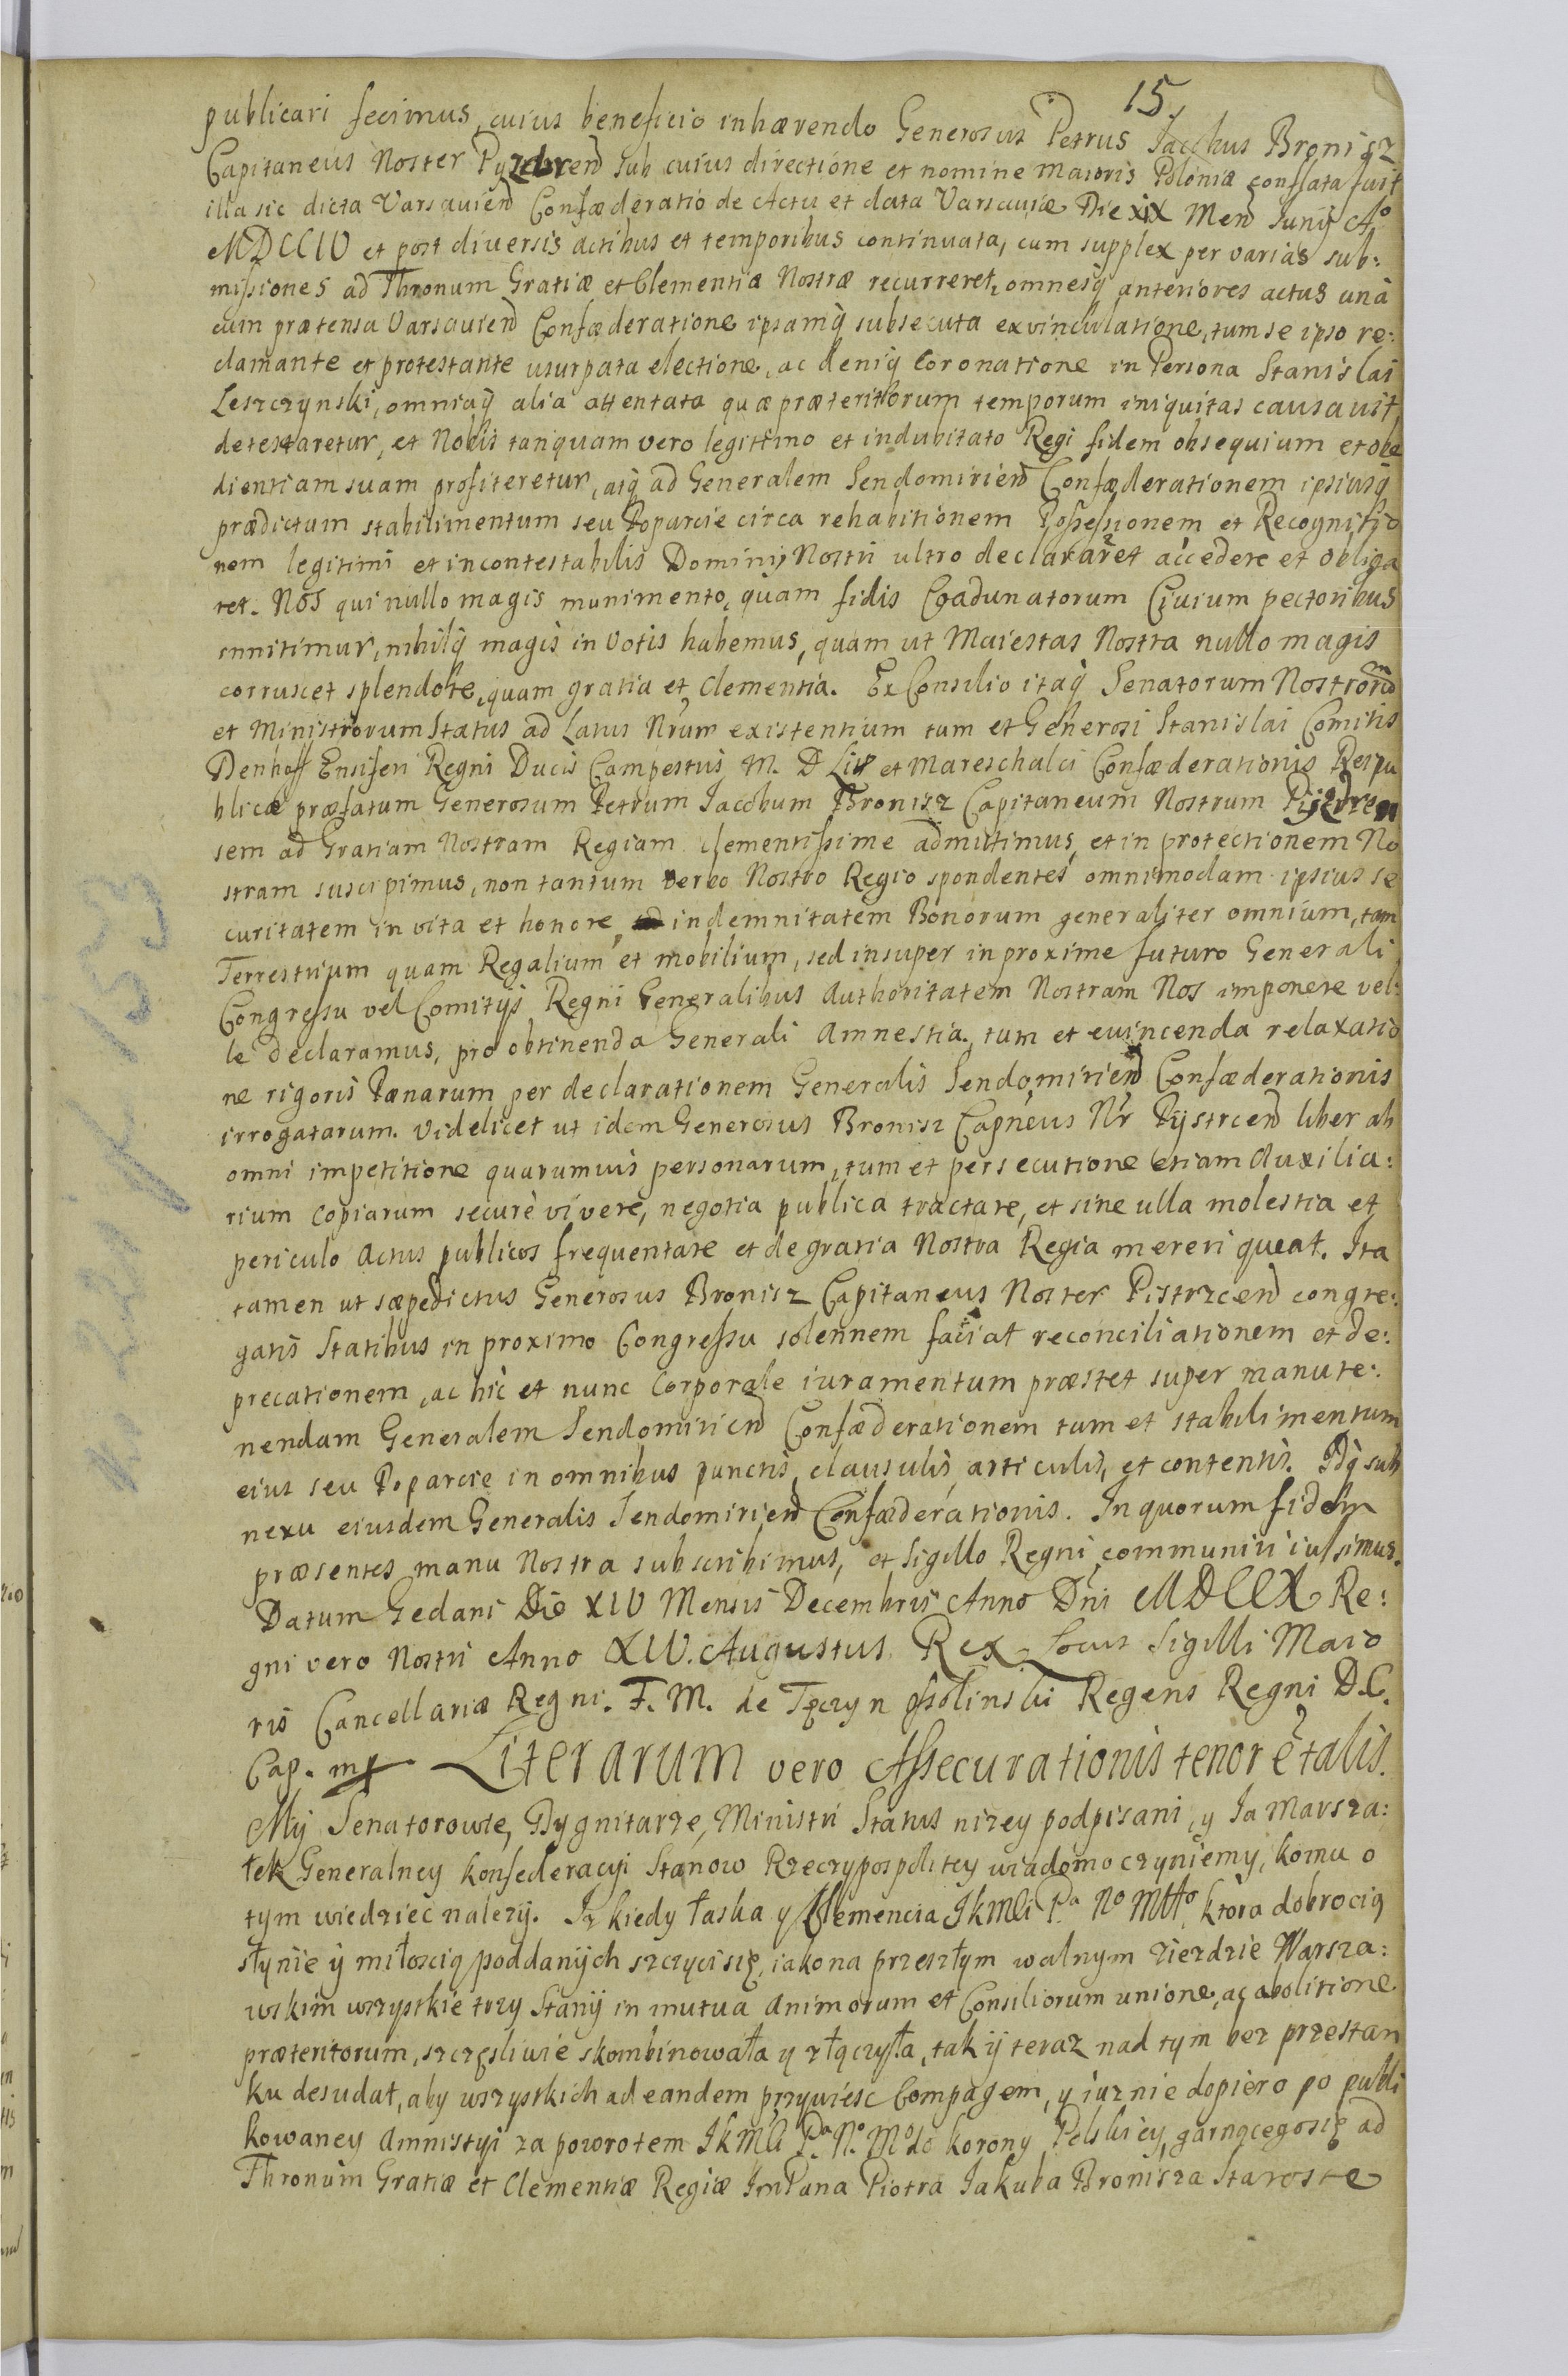 15
publicari fecimus, cuius beneficio inhærendo Generosus Petrus Jacobus Bronisz
Capitaneus Noster sub cuius directione et nomine Maioris Poloniæ conflata fuit
illa sic dicta Varsauien Confæderatio de Actu et data Varsauiæ Die XIX Men Junij Ao
MDCCIV et post diversis actibus et temporibus continuata, cum supplex per varias sub:
missiones ad Thronum Gratiæ et Clementiæ Nostræ recurreret, omnesq anteriores actus unà
cum prætensa Varsauien Confæderatione ipsamq subsecuta exvinculatione, tum se ipso re:
clamante et protestante usurpata electione, ac deniq Coronatione in Persona Stanislai
Leszczynski, omniaq alia attentata quæ præteritorum temporum iniquitas causauit,
detestaretur, et Nobis tanquam vero legitimo et indubitato Regi fidem obsequium et obe
dientiam suam profiteretur, atq ad Generalem Sendomirien Confæderationem ipsiusq
prædictum stabilimentum seu Poparcie circa rehabitionem Possessionem et Recognitio
nem legitimi et incontestabilis Dominij Nostri ultro declararet accedere et obliga
ret. Nos qui nullo magis munimento, quam fidis Coadunatorum Civium pectoribus
innitimur, nihilq magis in votis habemus, quam ut Maiestas Nostra nullo magis
corruscet splendore, quam gratia et Clementia. Ex Consilio itaq Senatorum Nostrorum
et Ministrorum Status ad Latus Nrum existentium tum et Generosi Stanislai Comitis
Denhoff Ensiferi Regni Ducis Campestris M. D. Lit et Mareschalci Confæderationis Reipu
blicæ præfatum Generosum Petrum Jacobum Bronisz Capitaneum Nostrum
sem ad Gratiam Nostram Regiam clementissime admittimus, et in protectionem No
stram suscipimus, non tantum verbo Nostro Regio spondentes omnimodam ipsius se
curitatem in vita et honore, indemnitatem Bonorum generaliter omnium, tam
Terrestrium quam Regalium et mobilium, sed insuper in proxime futuro Generali
Congressu vel Comitijs Regni Generalibus Authoritatem Nostram Nos imponere vel:
le declaramus, pro obtinenda Generali Amnestia, tum et euincenda relaxatio
ne rigoris Pænarum per declarationem Generalis Sendomirien Confæderationis
irrogatarum. Videlicet ut idem Generosus Bronisz Capneus Nr Pystrcen liber ab
omni impetitione quarumuis personarum, tum et persecutione etiam Auxilia:
rium Copiarum securè vivere, negotia publica tractare, et sine ulla molestia et
periculo Actus publicos frequentare et de gratia Nostra Regia mereri queat. Ita
tamen ut sæpedictus Generosus Bronisz Capitaneus Noster Pistrzcen congre:
gatis Statibus in proximo Congressu solennem faciat reconciliationem et de:
precationem, ac hic et nunc Corporale iuramentum præstet super manute:
nendam Generalem Sendomirien Confæderationem tum et stabilimentum
eius seu Poparcie in omnibus punctis, clausulis, articulis, et contentis. Idq sub
nexu eiusdem Generalis Sendomirien Confæderationis. In quorum fidem
præsentes manu Nostra subscribimus, et Sigillo Regni communiri iussimus.
Datum Gedani Die XIV Mensis Decembris Anno Dni MDCCX Re:
gni vero Nostri Anno XIV. Augustus Rex Locus Sigilli Maio
ris Cancellariæ Regni. F. M. de Tęczyn Ossolinski Regens Regni D. C.
Cap. mp Literarum vero Assecurationis tenor è talis.
My Senatorowie, Dygnitarze, Ministri Status niżey podpisani, y Ja Marsza:
łek Generalney Konfederacyi Stanow Rzeczypospolitey wiadomo czyniemy, komu o
tym wiedziec należy. Iż kiedy łaska y Klemencia JKMCi Pa No Mtto, ktora dobrocią
słynie y miłoscią poddanych szczyci się, iako na przeszłym walnym zieżdzie Warsza:
wskim wszystkie trzy Stany in mutua Animorum et Consiliorum unione, ac abolitione
præteritorum, szczęsliwie skombinowała y złączyła, tak y teraz nad tym bez przestan
ku desudat, aby wszystkich ad eandem przywiesc Compagem, y iuż nie dopiero po publi
kowaney Amnistyi za powrotem JKMCi Pa No Mo do Korony Polskiey, garnącego się ad
Thronum Gratiæ et Clementiæ Regiæ ImPana Piotra Jakuba Bronisza Staroste